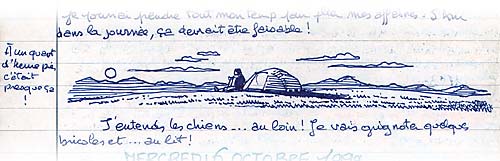 prendre tout mon temps pour mes affaires. 
dans la journée, ça devrait être faisable !
À un quart
d'heure près,
c'était
presque ça
!
J'entends les chiens ... au loin ! Je vais grignoter quelques
bricoles et ... au lit !
MERCREDI 6 OCTOBRE 1999